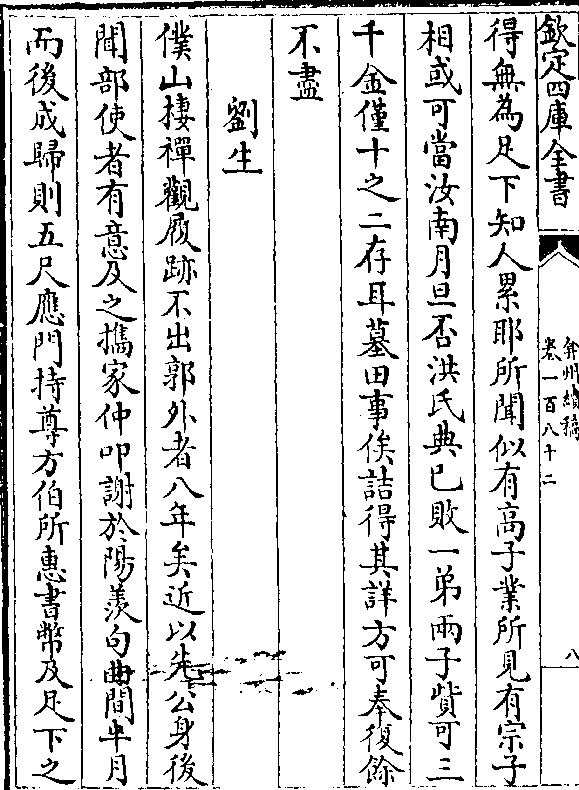 欽定四庫全書
弇州續稿
卷一百八十二
八
得無為足下知人累耶所聞似有高子業所見有宗子
相或可當汝南月旦否洪氏典已敗一弟兩子貲可三
千金僅十之二存耳墓田事俟詰得其詳方可奉復餘
不盡
劉生
僕山棲禪觀履跡不出郭外者八年矣近以先公身後
聞部使者有意及之攜家仲叩謝於陽羨句曲間半月
而後成歸則五尺應門持尊方伯所惠書幣及足下之